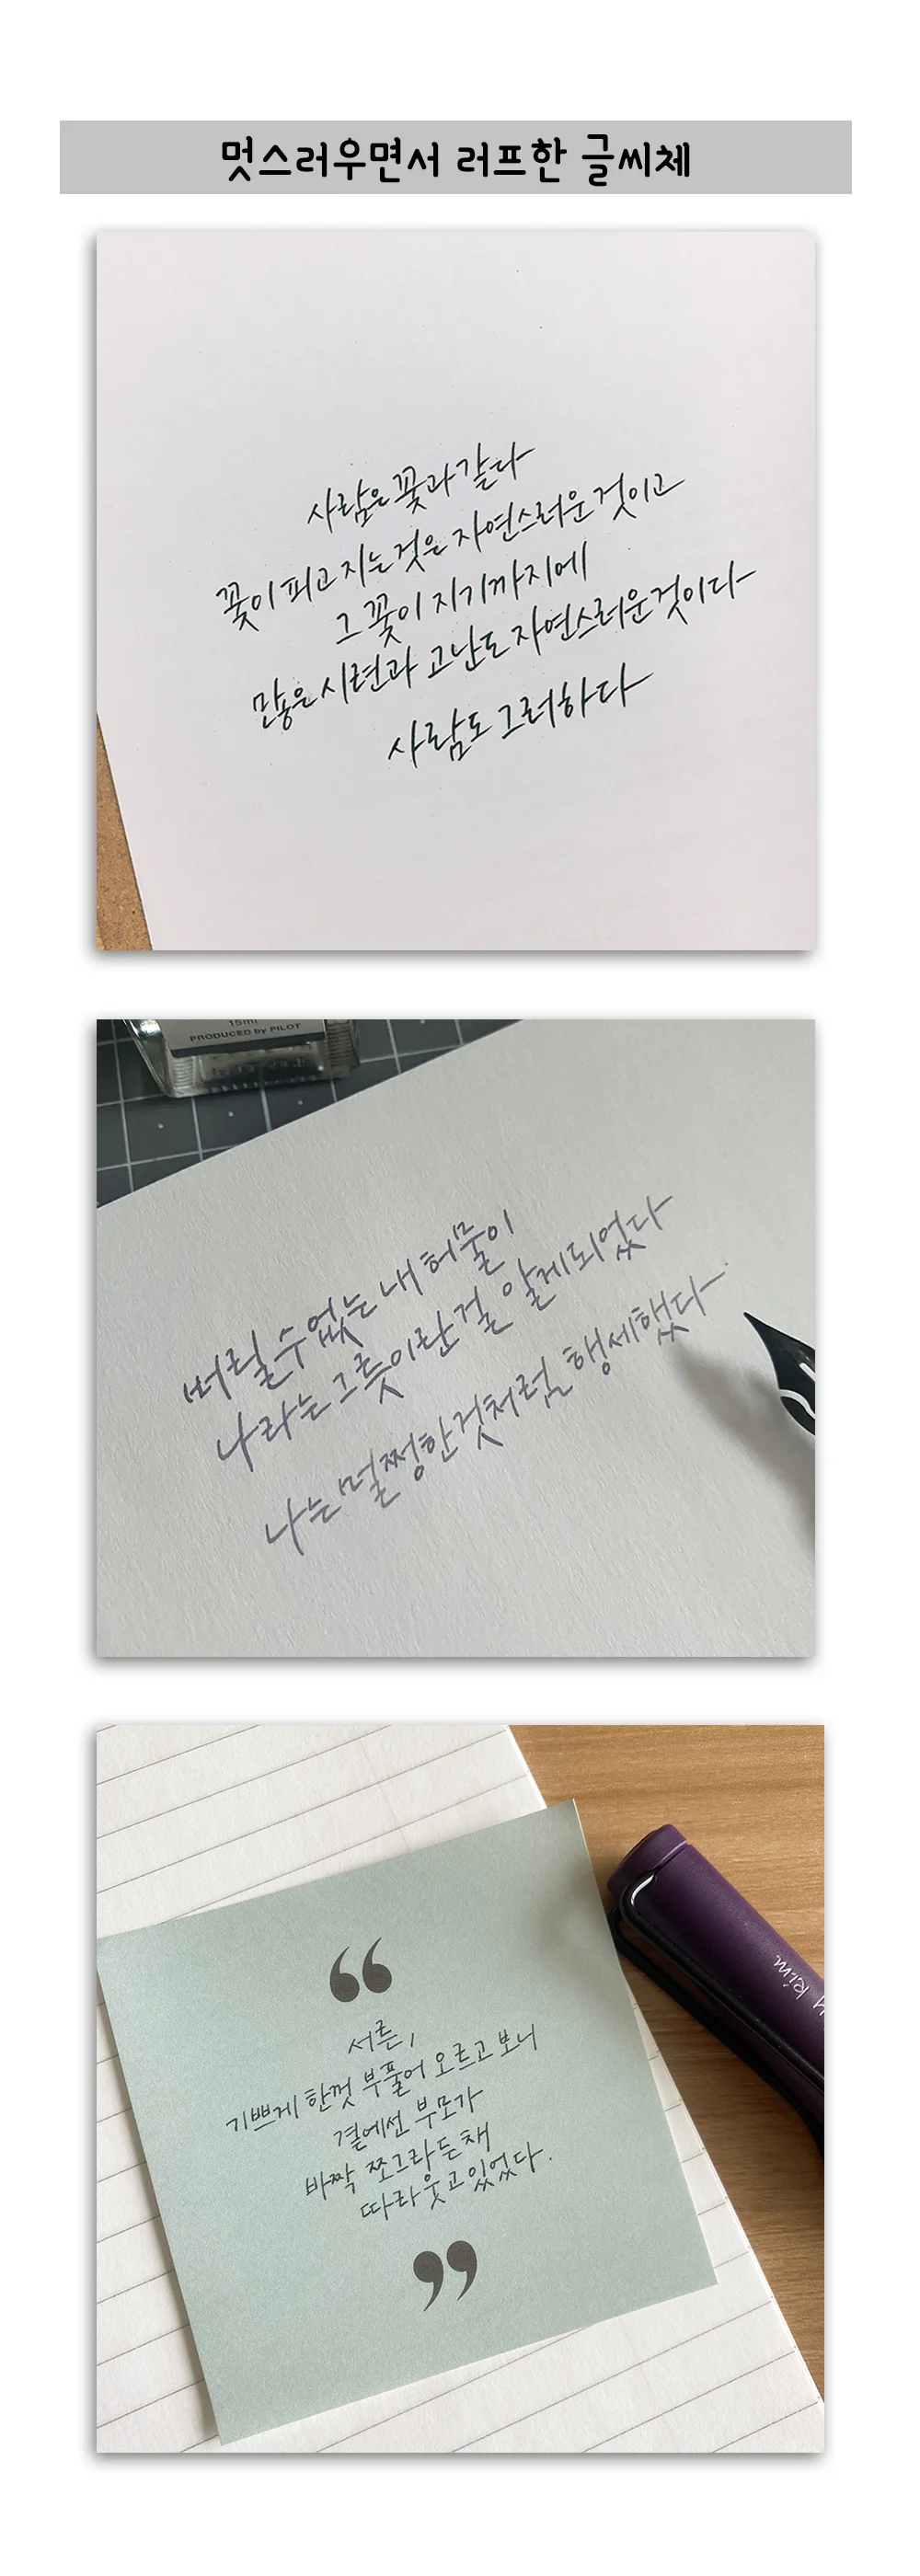 멋스러우면서 러프한 글씨체
사람은 꽃과 같다
꽃이 피고 지는것은 자연스러운 것이고
그 꽃이 지기까지에
많은 시련과 고난도 자연스러운것이다
사람도 그러하다
15ml
PRODUCED by PILOT
버릴 수 없는 내 허물이
나라는 그릇이란 걸 알게되었다
나는 멀쩡한 것처럼 행세했다
“
서른,
기쁘게 한껏 부풀어 오르고 보니
곁에선 부모가
바짝 쪼그라든 채
따라 웃고있었다.
”
kim